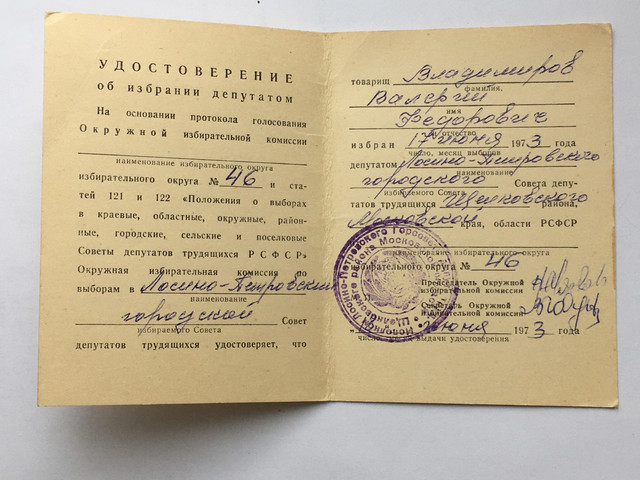 УДОСТОВЕРЕНИЕ
об избрании депутатом
На основании протокола голосования
Окружной избирательной комиссии
наименование избирательного округа
избирательного округа № 46 и ста-
тей 121 и 122 «Положения о выборах
в краевые, областные, окружные, район-
ные, городские, сельские и поселковые
Советы депутатов трудящихся РСФСР»
Окружная избирательная комиссия по
выборам в Лосино-Петровский
наименование
городской Совет
избираемого Совета
депутатов трудящихся удостоверяет, что
товарищ Владимиров
фамилия,
Валерий
имя
Федорович
и отчество
избран 17 июня 1973 года
число, месяц выборов
депутатом Лосино-Петровского
наименование
городского Совета депу-
избираемого Совета
татов трудящихся Щелковского района,
Московской края, области РСФСР
наименование избирательного округа
бирательного округа № 46
Председатель Окружной
избирательной комиссии
Секретарь Окружной
избирательной комиссии
июня 1973 года
число, месяц выдачи удостоверения